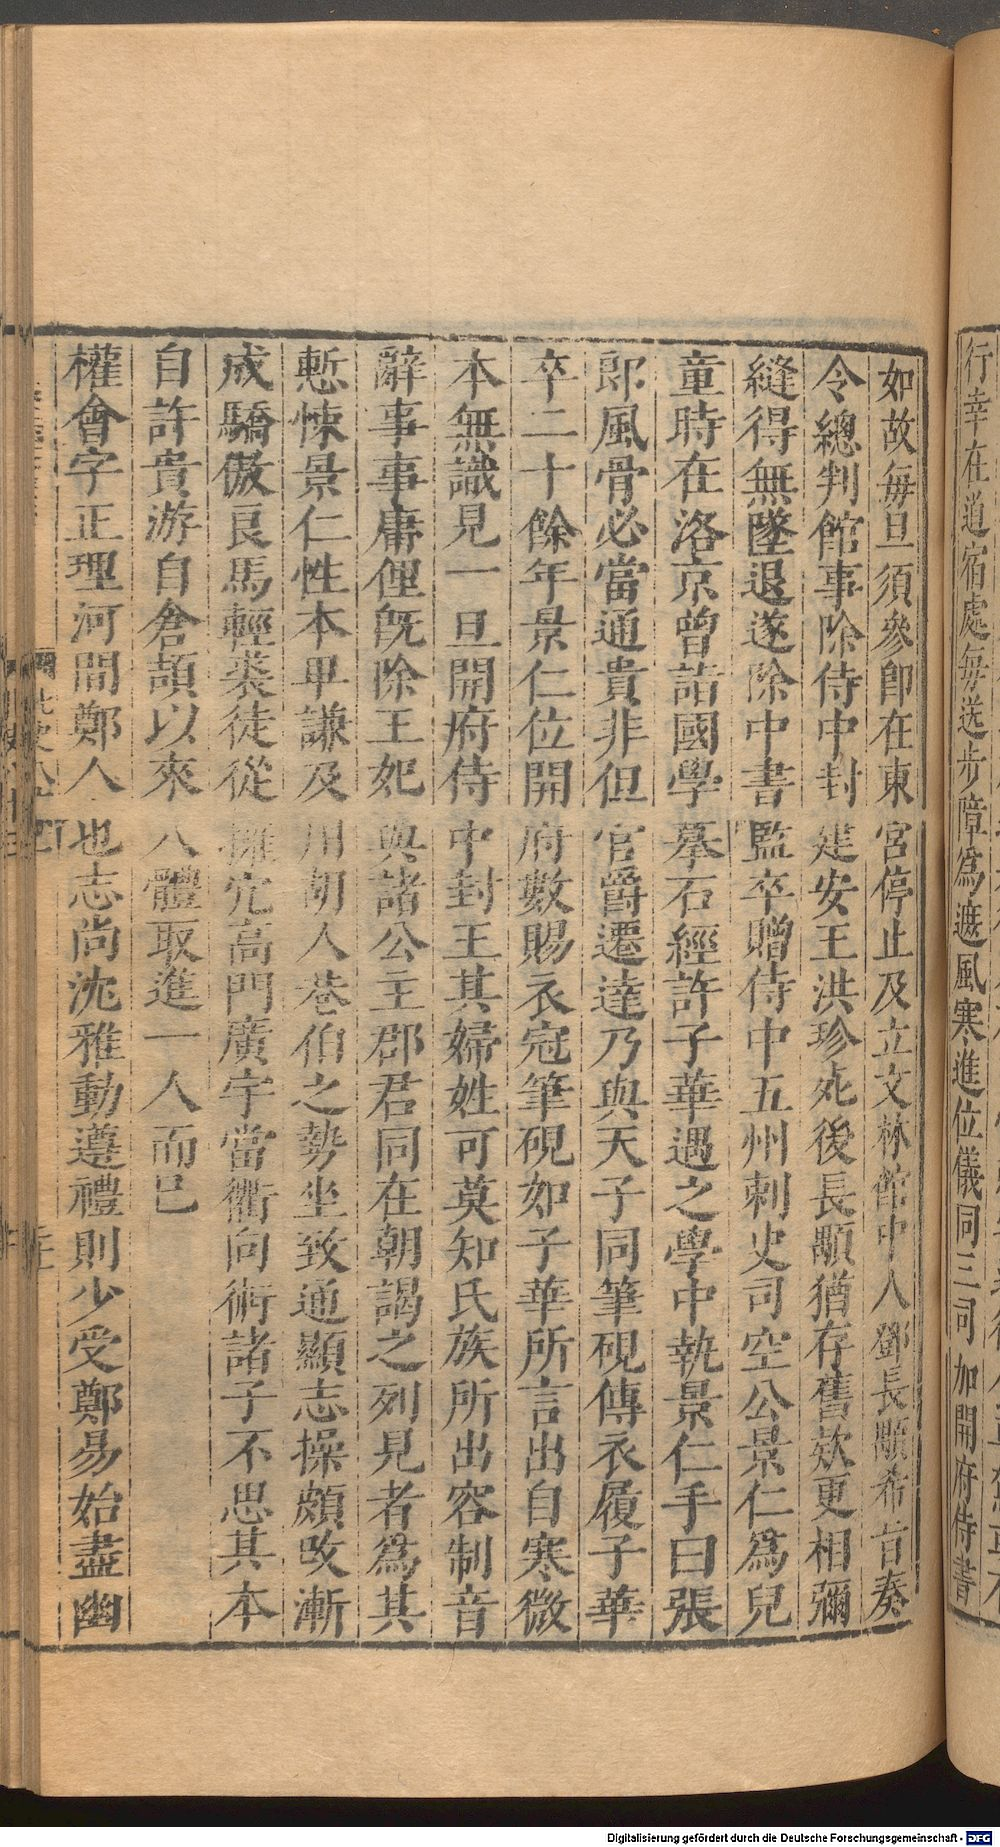 行幸在道宿處每送步障爲遮風寒進位儀同三司加開府侍書
如故每旦須參卽在東宮停止及立文林館中人鄧長顒希旨奏
令總判館事除侍中封建安王洪珍死後長顒猶存舊欵更相彌
縫得無墜退遂除中書監卒贈侍中五州刺史司空公景仁爲兒
童時在洛京曾詣國學摹石經許子華遇之學中執景仁手曰張
郎風骨必當通貴非但官爵遷達乃與天子同筆硯傳衣履子華
卒二十餘年景仁位開府數賜衣冠筆硯如子華所言出自寒微
本無識見一旦開府侍中封王其婦姓可莫知氏族所出容制音
辭事事庸俚旣除王妃與諸公主郡君同在朝謁之列見者爲其
慙悚景仁性本卑謙及用胡人巷伯之勢坐致通顯志操頗改漸
成驕傲良馬輕裘徒從擁冗高門廣宇當衢向術諸子不思其本
自許貴游自倉頡以來八體取進一人而已
權會字正理河間鄭人也志尚沈雅動遵禮則少受鄭易始盡幽
Digitalisierung gefördert durch die Deutsche Forschungsgemeinschaft - DFG